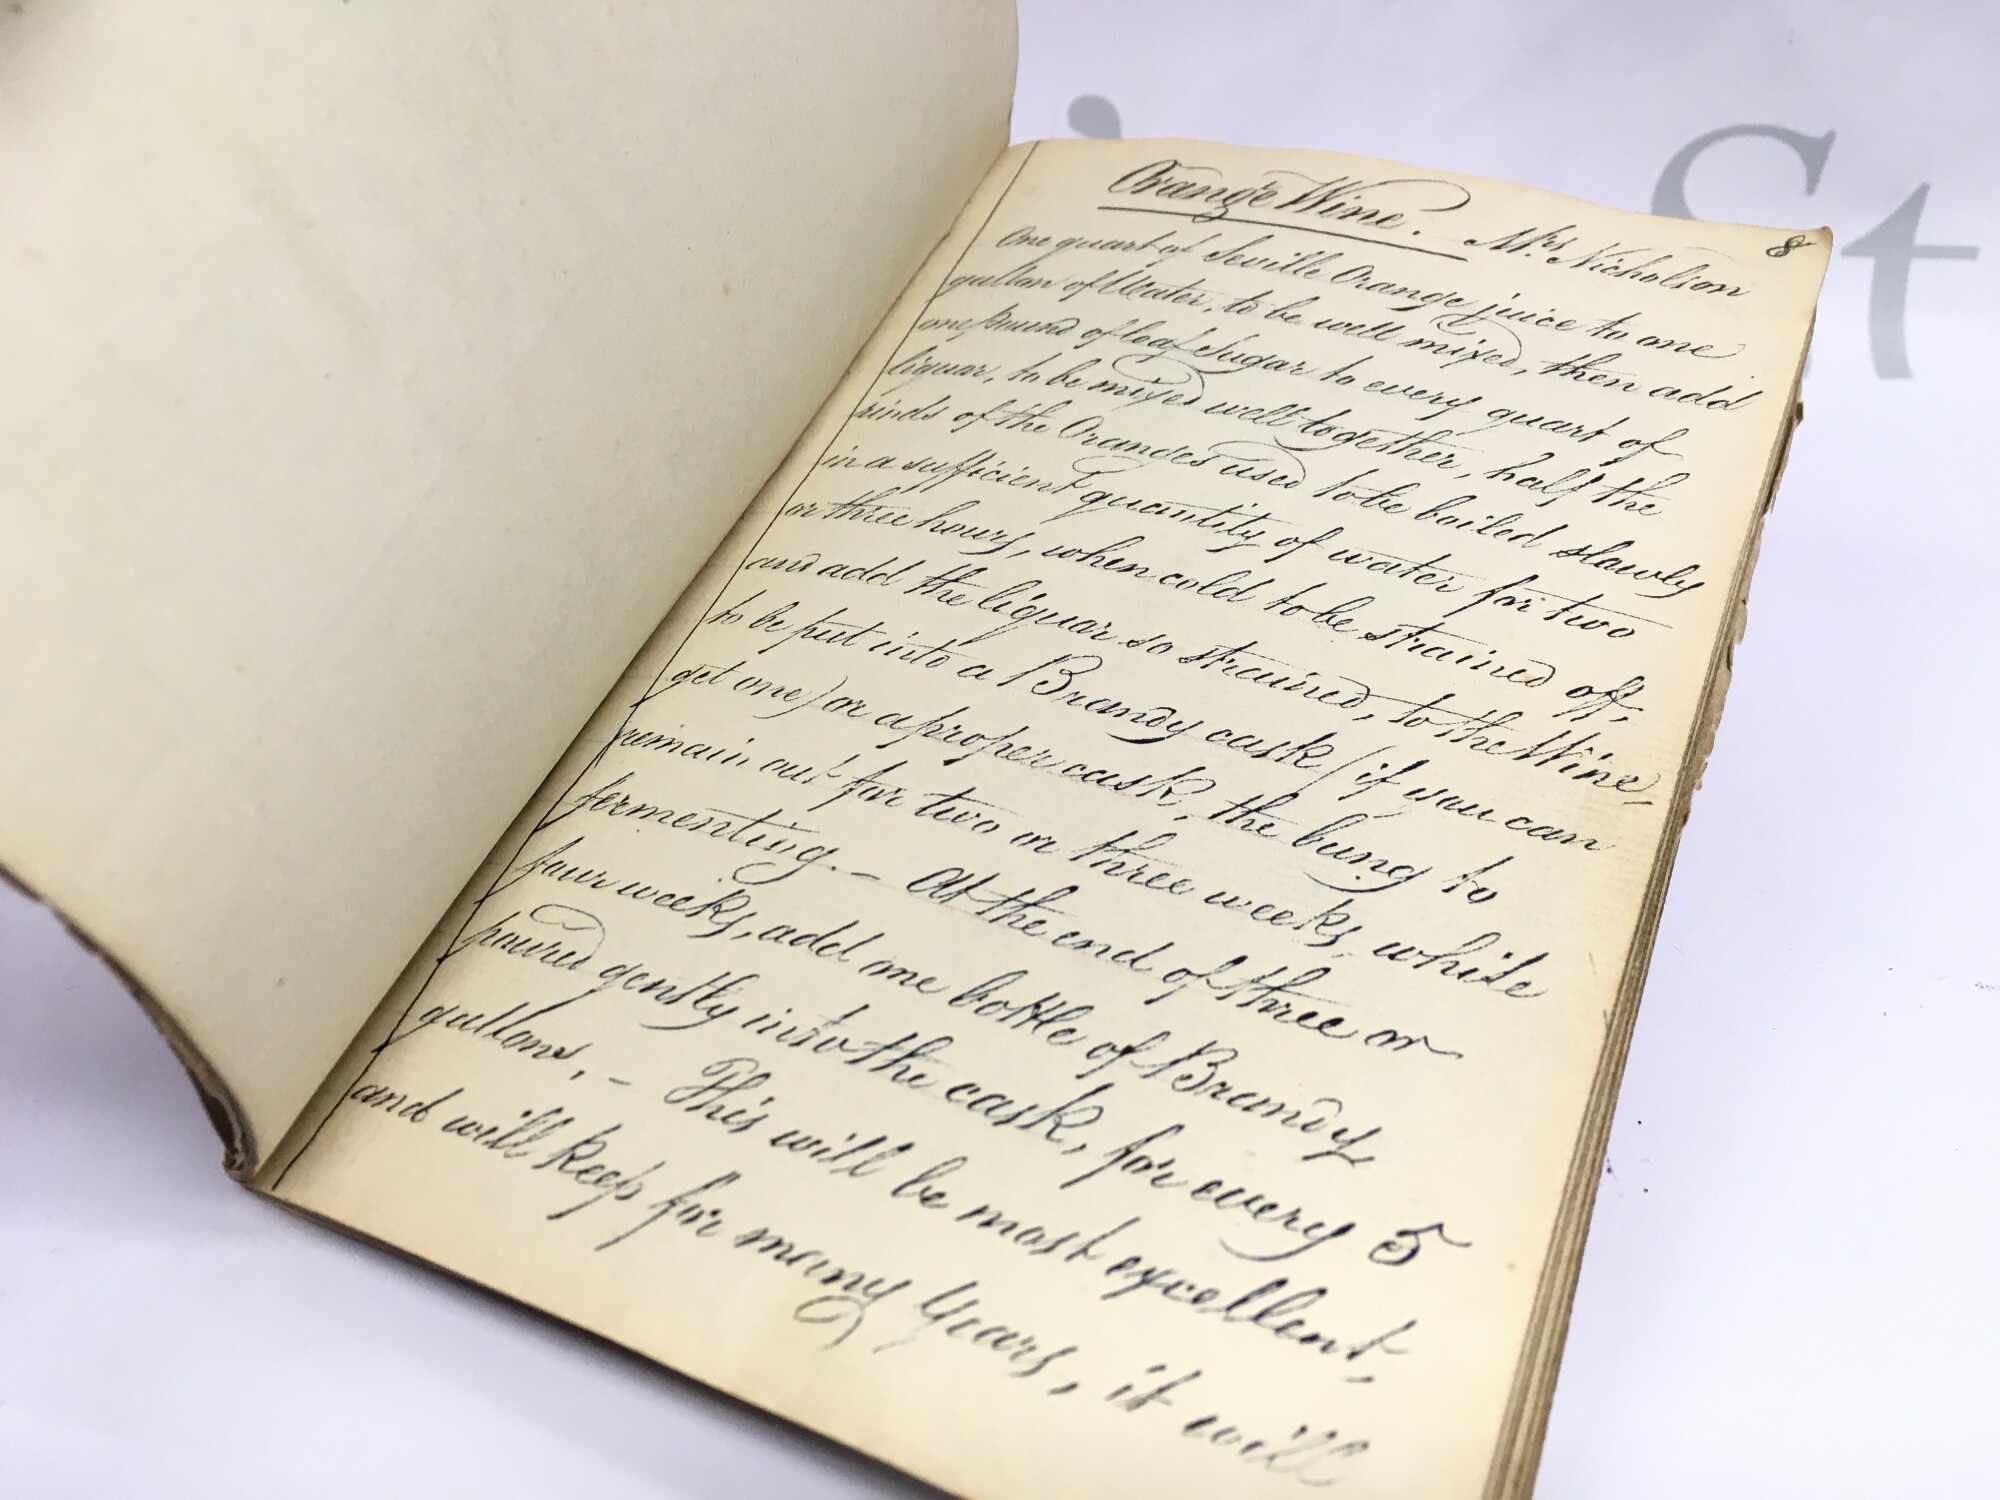 Orange Wine. Mrs. Nicholson
8
One quart of Seville Orange juice to one
gallon of Water, to be well mixed, then add
one pound of loaf Sugar to every quart of
liquor, to be mixed well together, half the
rinds of the Oranges used to be boiled slowly
in a sufficient quantity of water for two
or three hours, when cold to be strained off,
and add the liquor so strained, to the Wine,
to be put into a Brandy cask (if you can
get one) or a proper cask, the bung to
remain out for two or three weeks, while
fermenting. – At the end of three or
four weeks, add one bottle of Brandy
poured gently into the cask, for every 5
gallons, – This will be most excellent,
and will keep for many years, it will
St